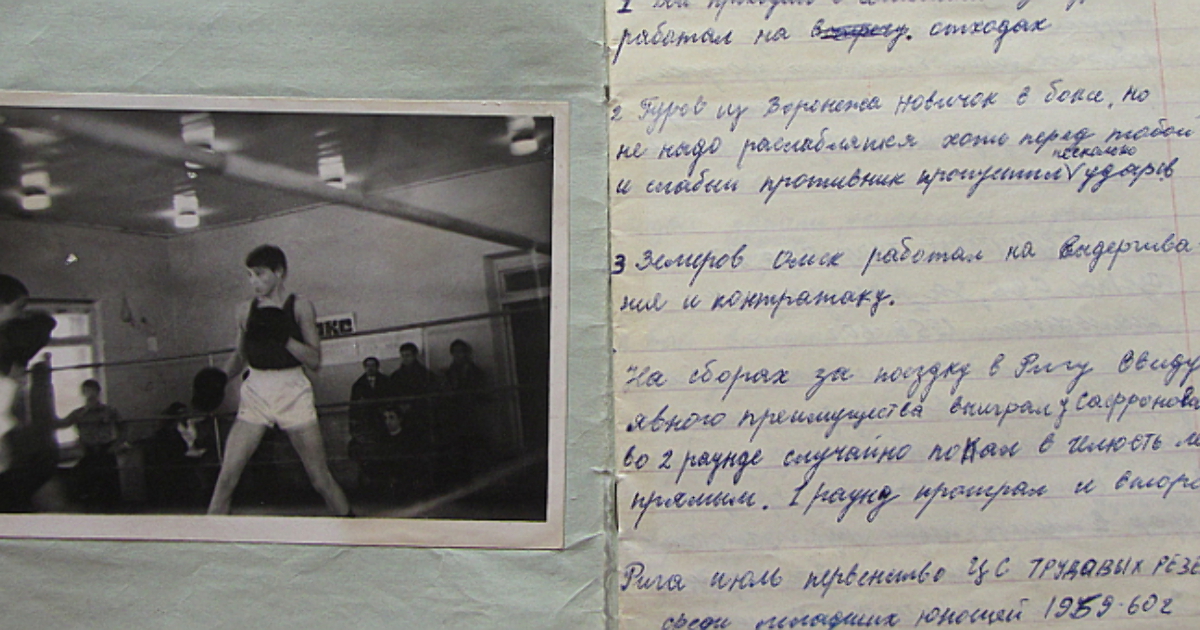 работал на отходах
2 Гуров из Воронежа новичок в боксе, но
не надо расслаблятся хоть перед тобой
и слабый противник пропустил несколько ударов
3 Земеров Омск работал на выдергива
ния и контратаку.
На сборах за поездку в Ригу ввиду
явного преимущества выиграл у Сафронова
во 2 раунде случайно попал в челюсть
прямым. 1 раунд проиграл и
Рига июль первенство ЦС ТРУДАВЫХ РЕЗЕ
среди младших юношей 1959-60г